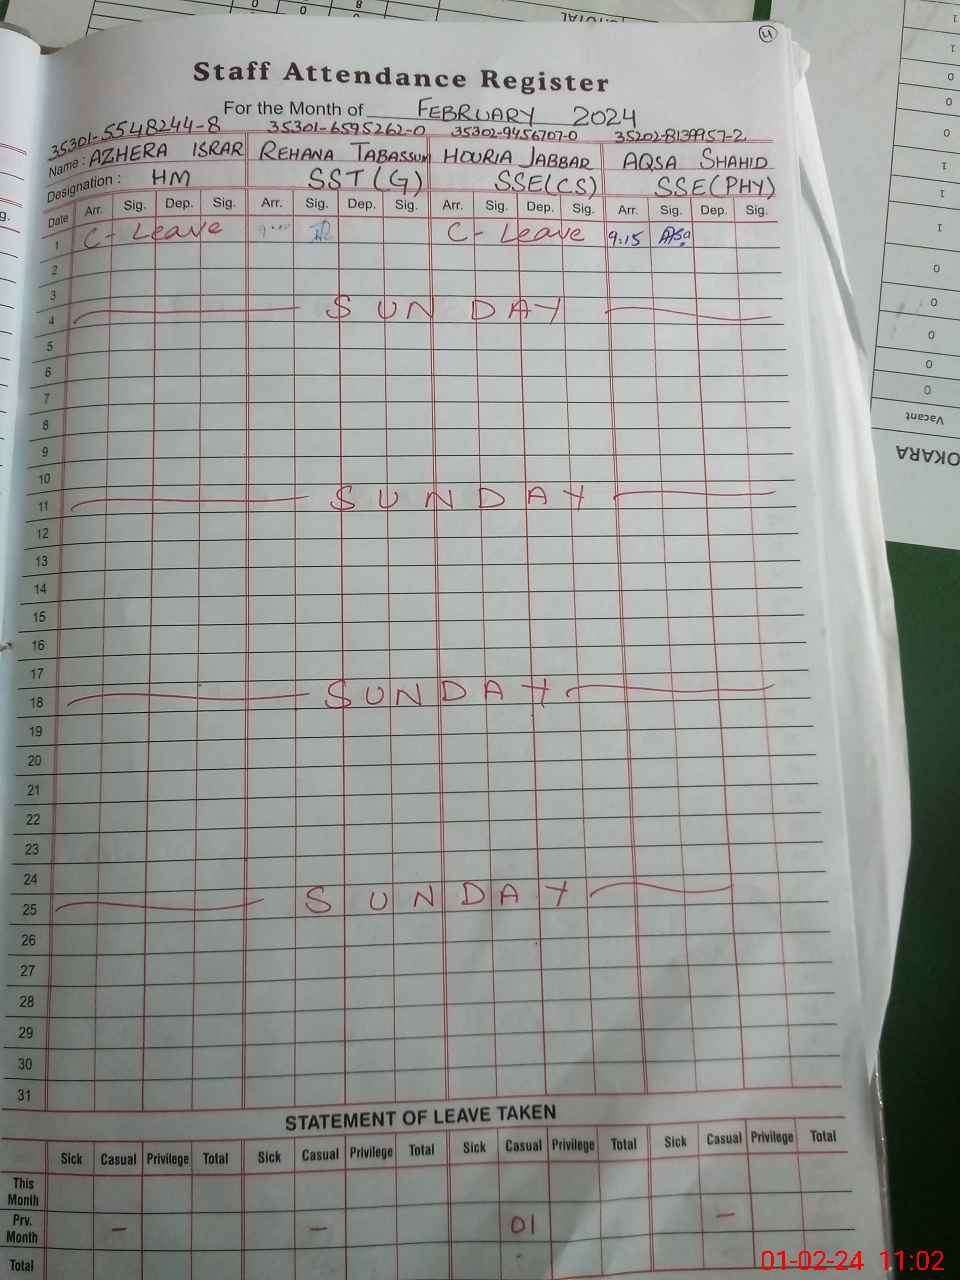 4
Staff Attendance Register
For the Month of FEBRUARY 2024
35301-5548244-8 35301-6595262-0 35302-9456707-0 35202-8139957-2
Name: AZHERA ISRAR REHANA TABASSUM HOURIA JABBAR AQSA SHAHID
Designation: HM SST(G) SSE(CS) SSE(PHY)
Date Arr. Sig. Dep. Sig. Arr. Sig. Dep. Sig. Arr. Sig. Dep. Sig. Arr. Sig. Dep. Sig.
1 C- Leave C- Leave 9:15
2
3
4 SUNDAY
5
6
7
8
9
10
11 SUNDAY
12
13
14
15
16
17
18 SUNDAY
19
20
21
22
23
24
25 SUNDAY
26
27
28
29
30
31
STATEMENT OF LEAVE TAKEN
Sick Casual Privilege Total Sick Casual Privilege Total Sick Casual Privilege Total Sick Casual Privilege Total
This Month
Prv. Month – – 01 –
Total
Vacant
OKARA
01-02-24 11:02